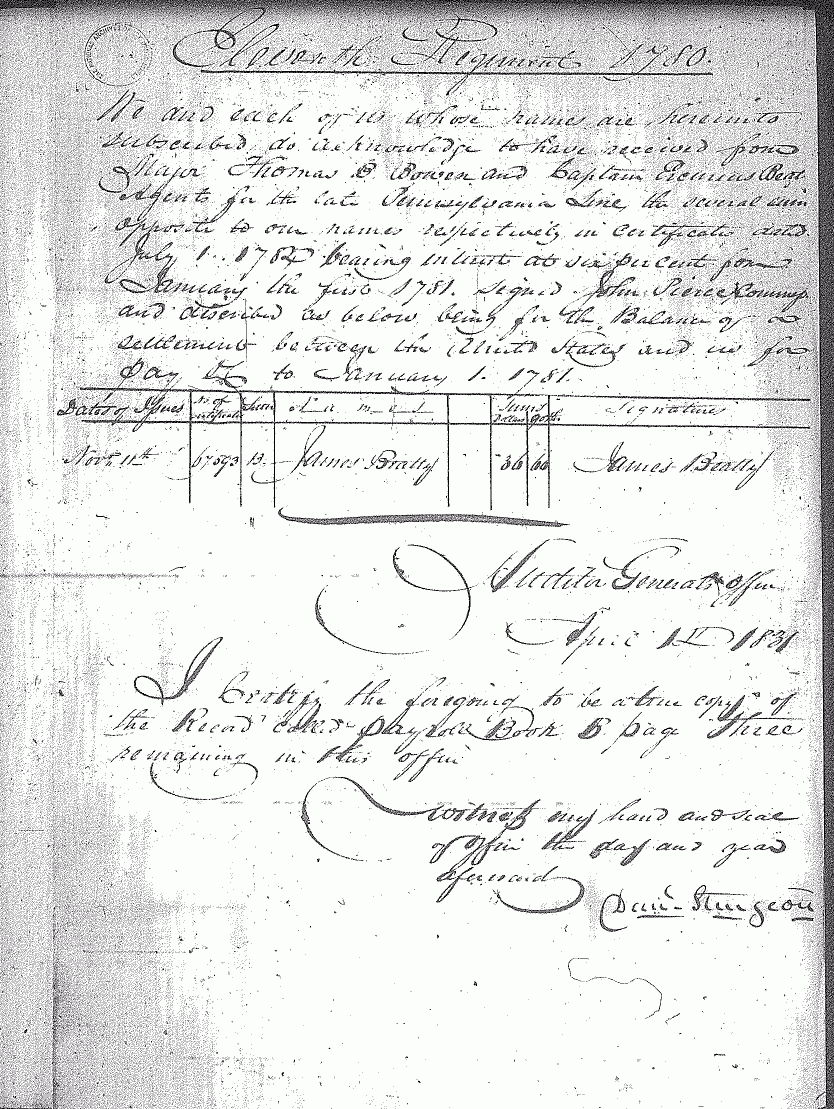 Eleventh Regiment 1780.
We and each of us whose names are hereunto
subscribed, do acknowledge to have received from
Major Thomas B Bowen and Captain Erecurius Beat
Agents for the late Pennsylvania Line, the several sum
opposite to our names respectively in certificate dated
July 1.. 1784 bearing interest at six per cent from
January the first 1781. Signed John Pierce Commiss
and described as below being for the Balance of a
settlement between the United States and us for
pay &c to January 1. 1781.
Dates of Issues No of certificate Letter Names Sums Dollars 90ths Signature
Novr 11th 67593 B James Beatty 36 60 James Beatty
Auditor Generals office
April 1st 1831
I Certify the foregoing to be a true copy of
the Record called payroll Book B page Three
remaining in this office
witness my hand and seal
of office the day and year
aforesaid
Danl Sturgeon